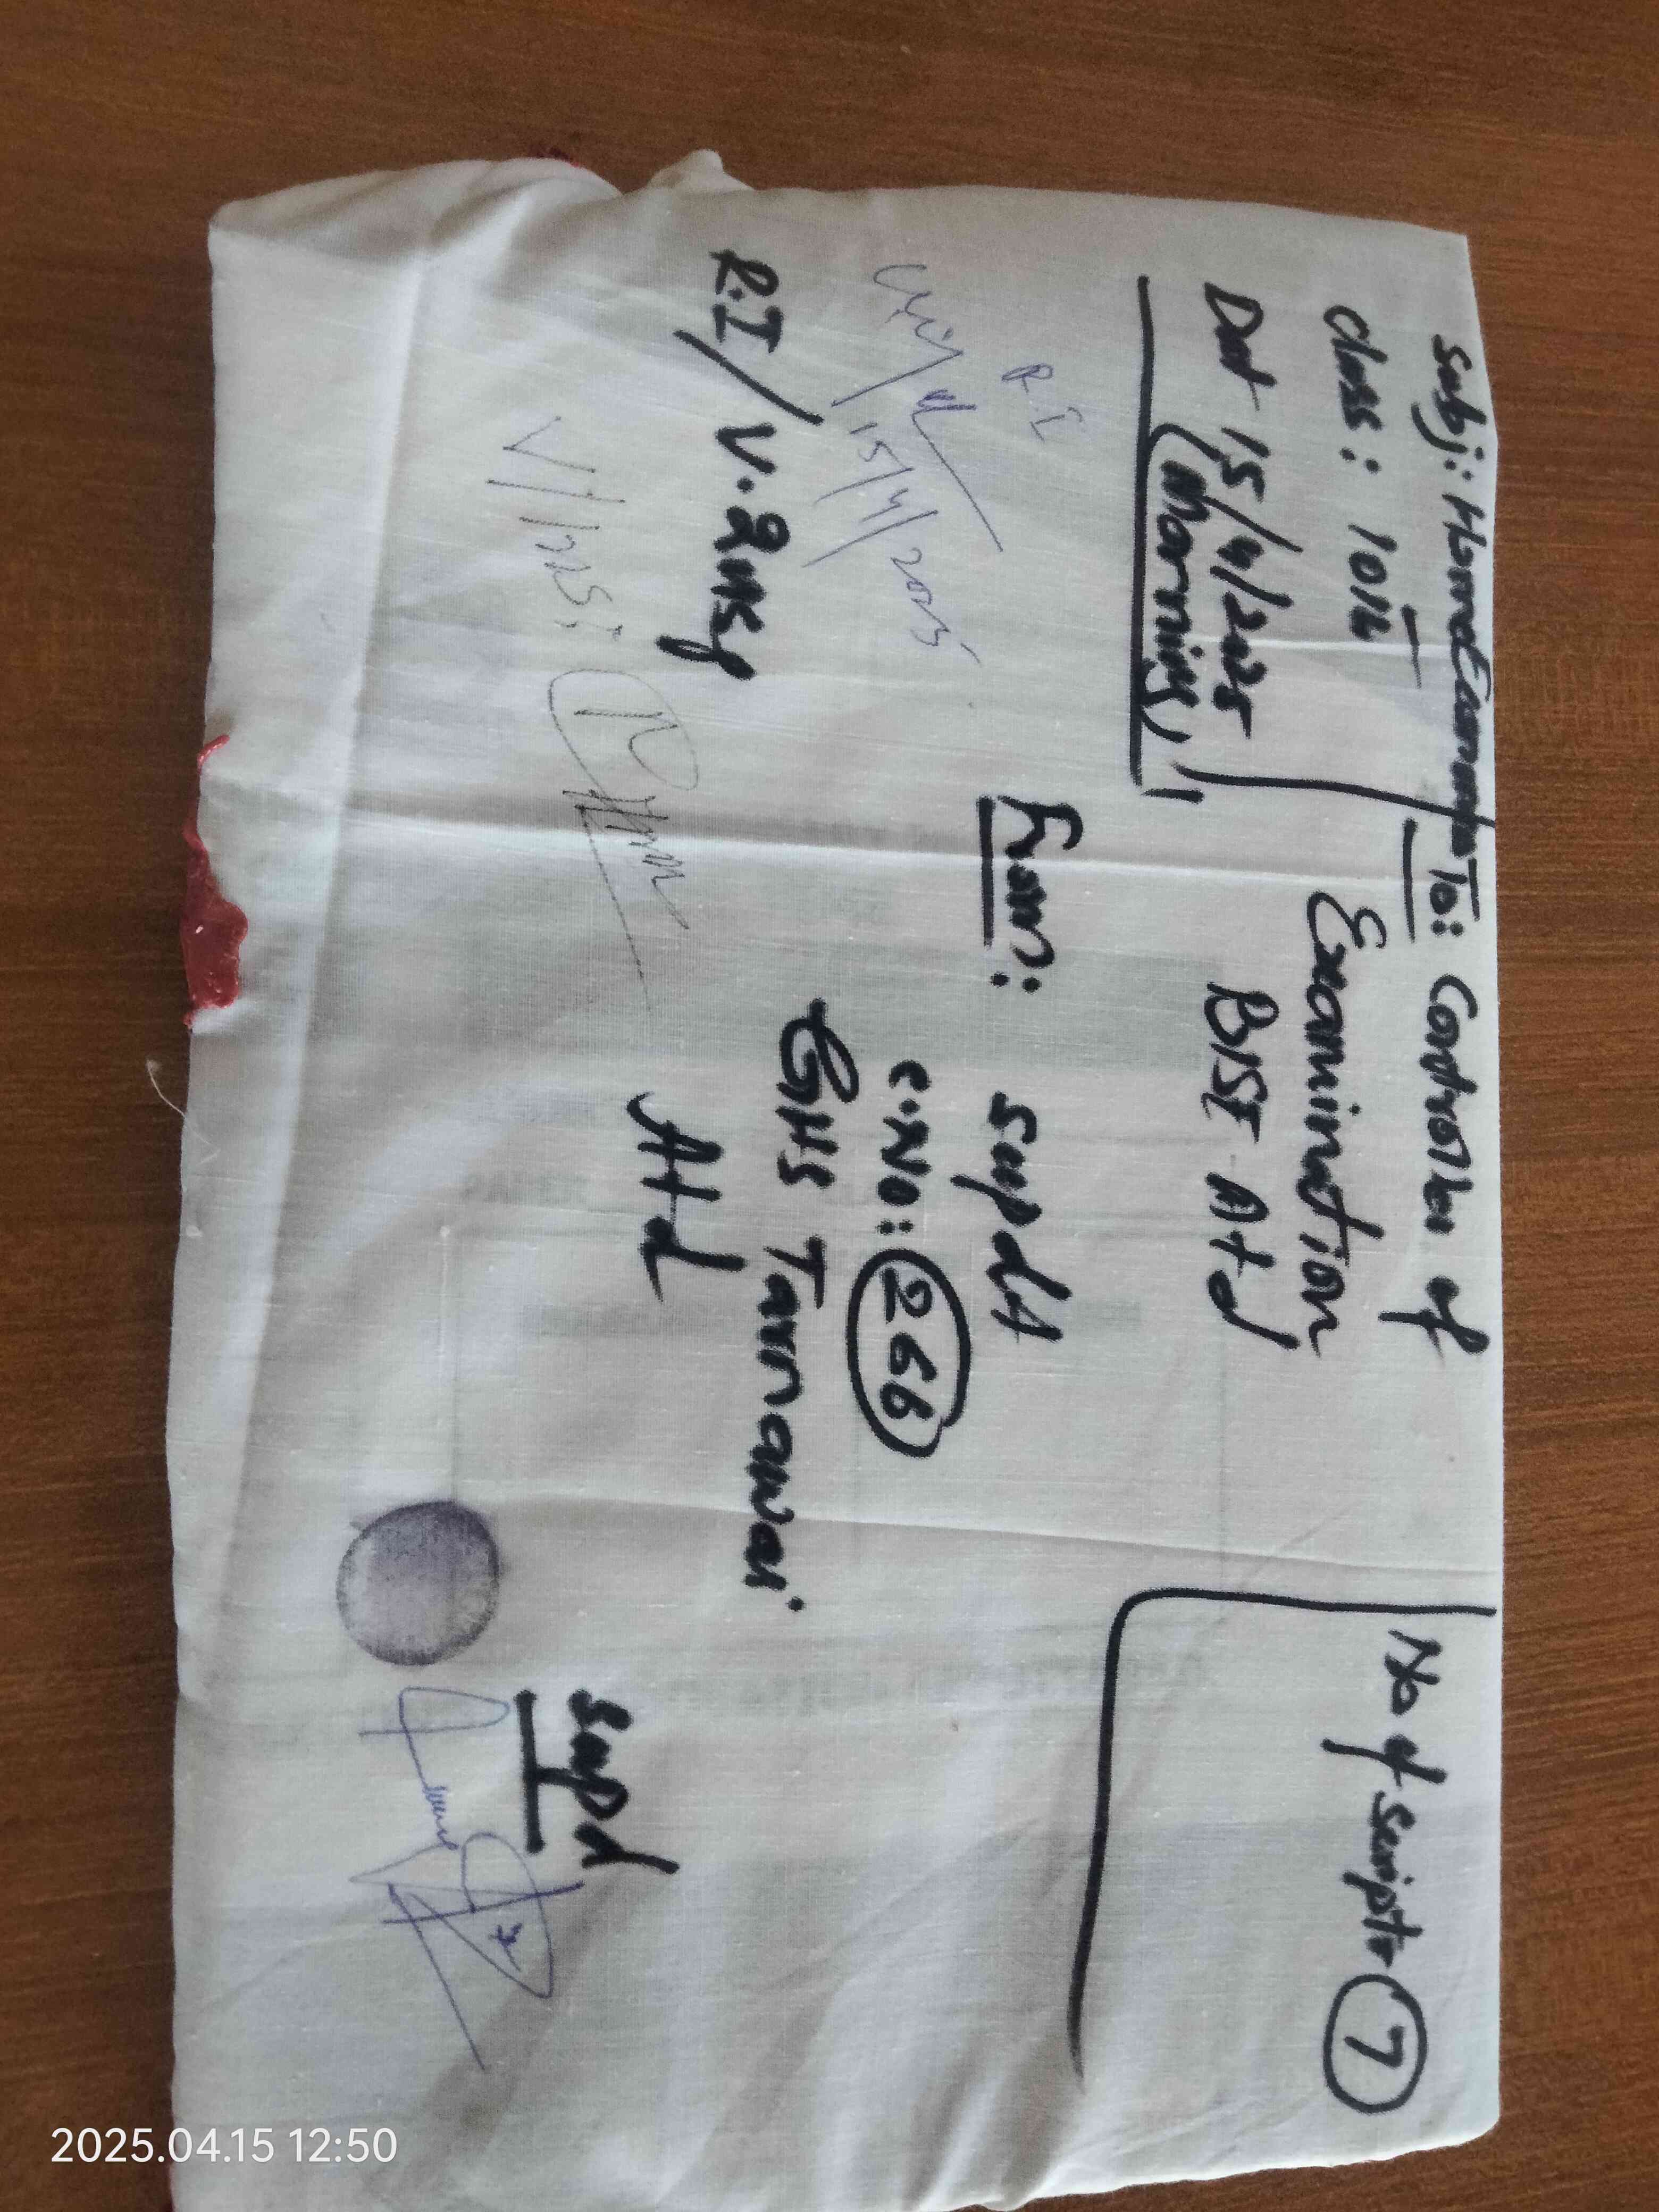 Subj: Home Economics
Class: 10th
Dat 15/4/2025
(Morning)
To: Controller of
Examination
BISE Atd
No of scripts 7
From: Supdt
C.No: 266
GHS Tarnawai
Atd
R.I
15/4/2025
R.I/V.Insp
Supdt
2025.04.15 12:50